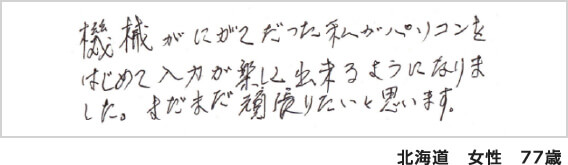 機械がにがてだった私がパソコンを
はじめて入力が楽しく出来るようになりま
した。まだまだ頑張りたいと思います。
北海道　女性　77歳